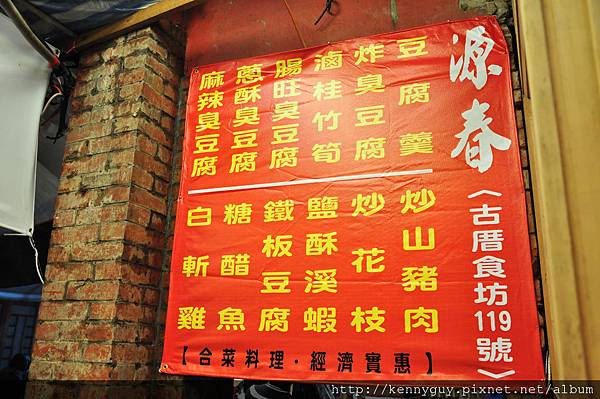 源春
〈古厝食坊119號〉
豆腐羹
炸臭豆腐
滷桂竹筍
腸旺臭豆腐
蔥酥臭豆腐
麻辣臭豆腐
炒山豬肉
炒花枝
鹽酥溪蝦
鐵板豆腐
糖醋魚
白斬雞
【合菜料理·經濟實惠】
http://kennyguy.pixnet.net/album